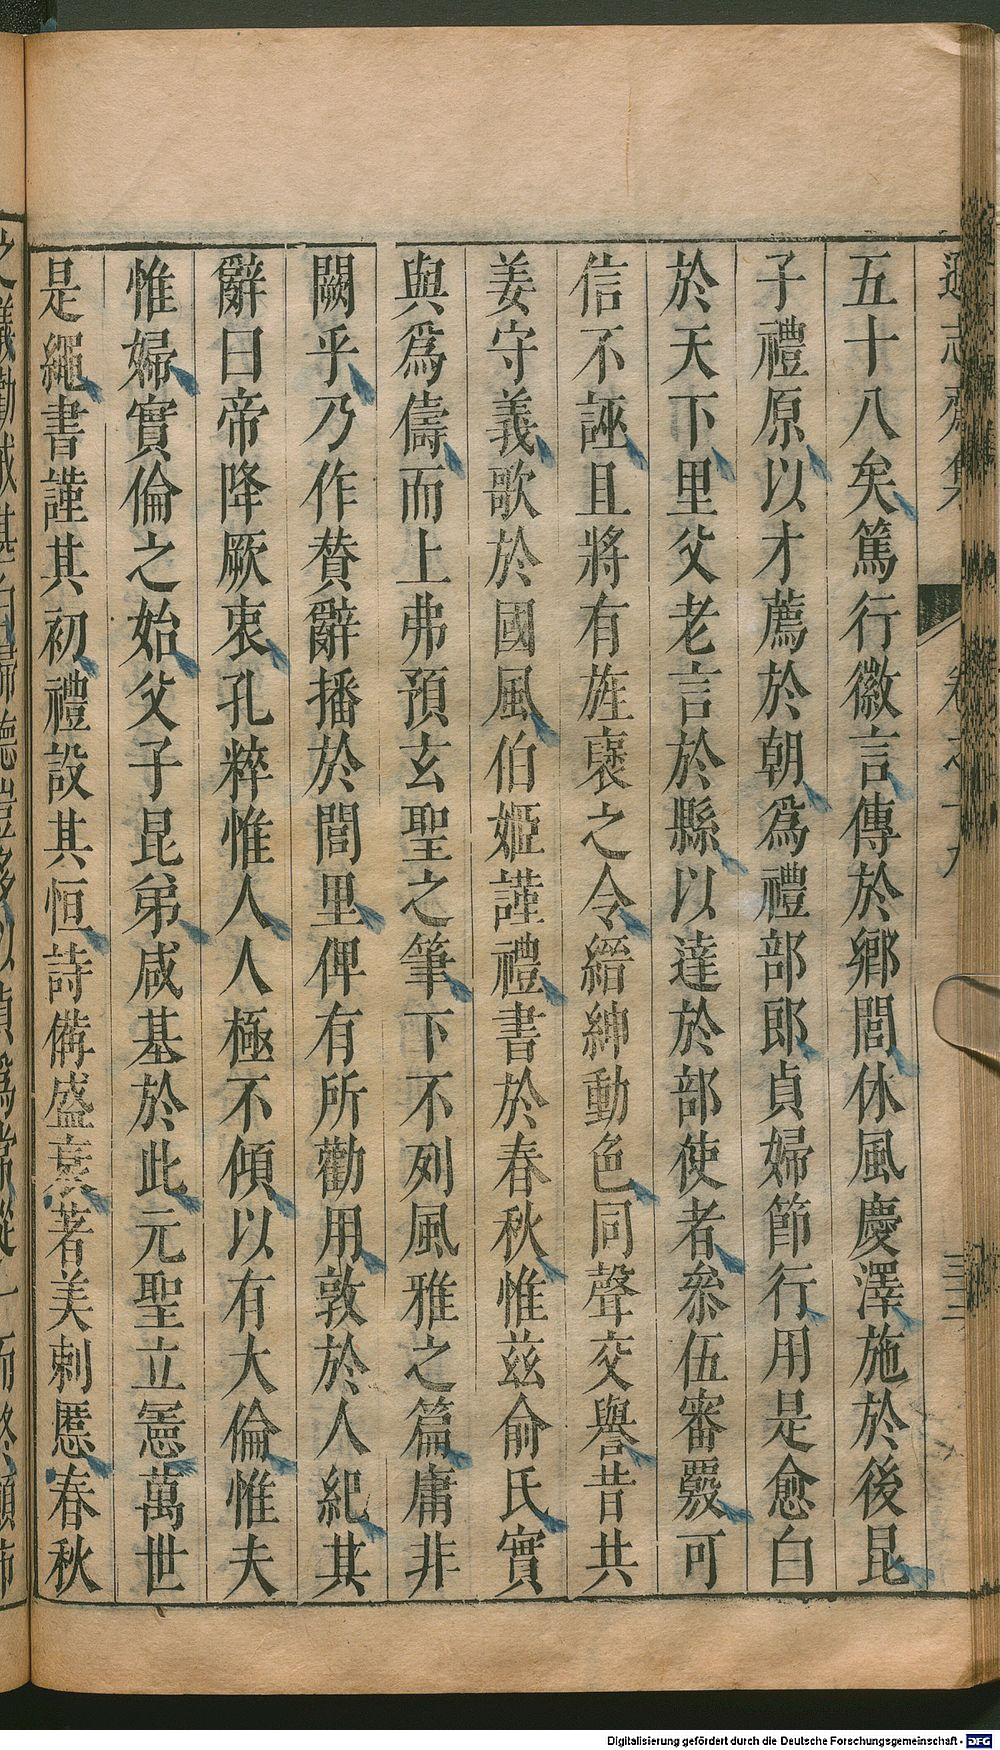 五十八矣篤行徽言傳於鄉閭休風慶澤施於後昆
子禮原以才薦於朝爲禮部郎貞婦節行用是愈白
於天下里父老言於縣以達於部使者叅伍審覈可
信不誣且將有旌褒之令縉紳動色同聲交譽昔共
姜守義歌於國風伯姬謹禮書於春秋惟茲俞氏實
與爲儔而上弗預玄聖之筆下不列風雅之篇庸非
闕乎乃作贊辭播於閭里俾有所勸用敦於人紀其
辭曰帝降厥衷孔粹惟人人極不傾以有大倫惟夫
惟婦實倫之始父子昆弟咸基於此元聖立憲萬世
是繩書謹其初禮設其恒詩備盛衰著美刺慝春秋
Digitalisierung gefördert durch die Deutsche Forschungsgemeinschaft - DFG